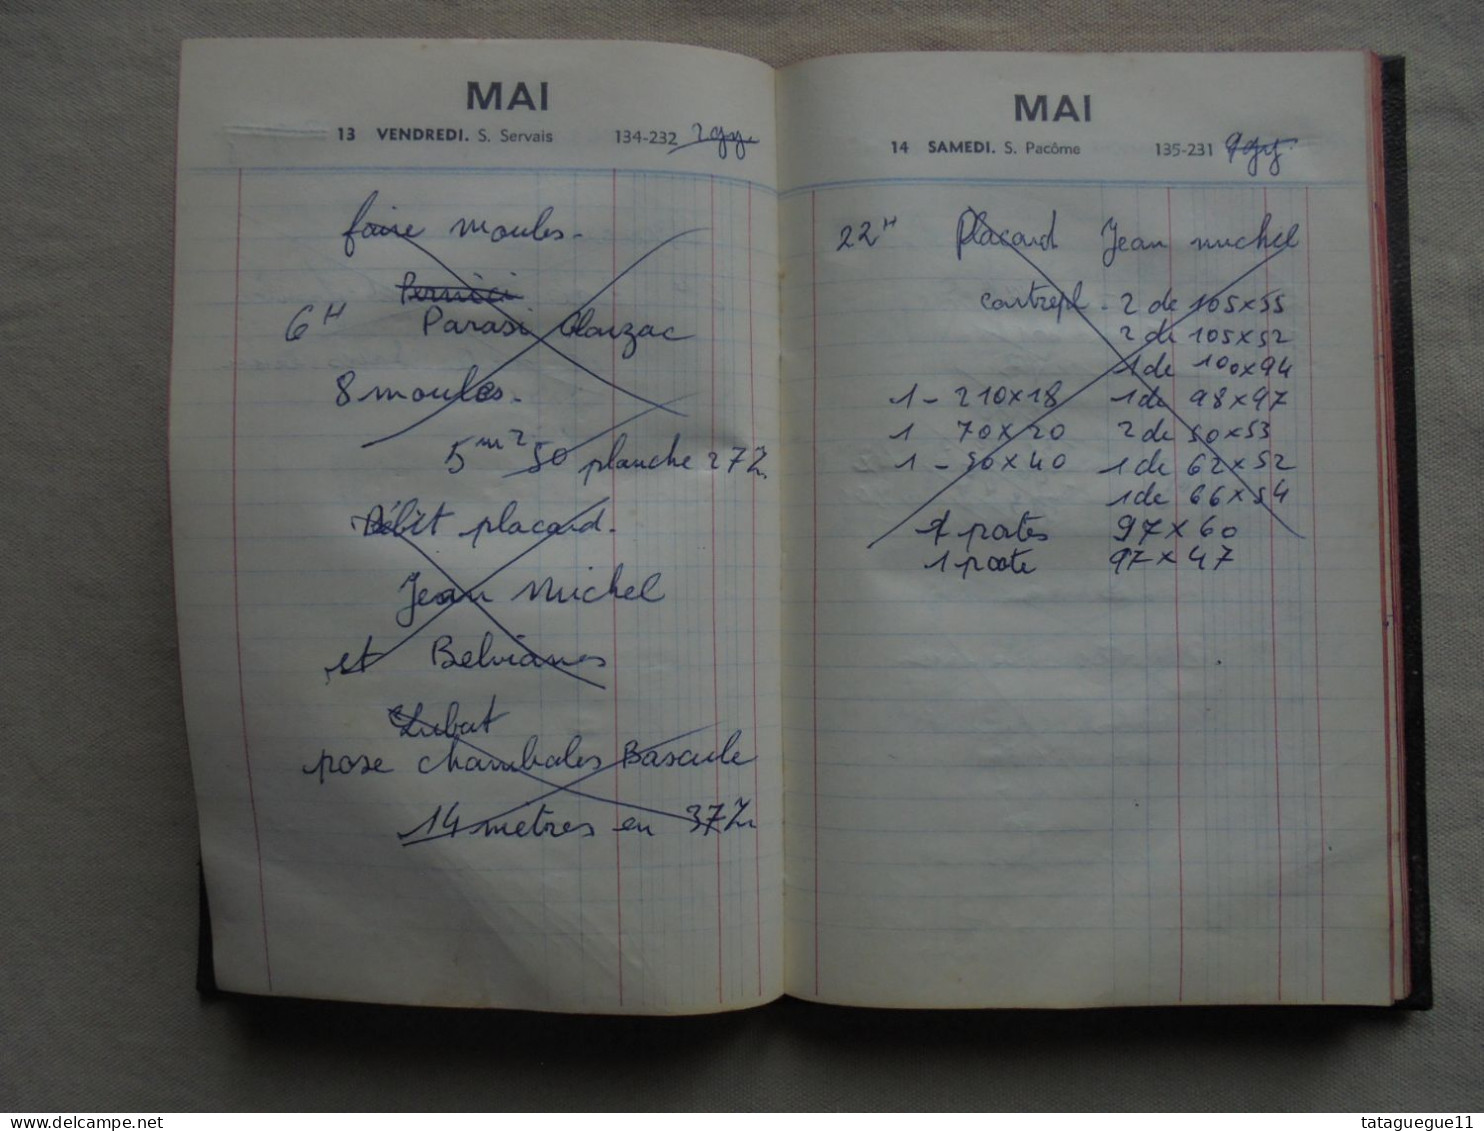 MAI
13 VENDREDI. S. Servais 134-232
faire moules-
Pernici
6H Parasi Clauzac
8 moules-
5 m2 50 planche 27
Débit placard.
Jean Michel
et Belvianes
Lubat
pose chambales Bascule
14 metres en 37
MAI
14 SAMEDI. S. Pacôme 135-231
22H Placard Jean Michel
contrepl - 2 de 105x55
2 de 105x52
1 de 100x94
1 - 210x18 1 de 98x97
1 70x20 2 de 50x53
1 - 50x40 1 de 62x52
1 de 66x54
portes 97x60
1 porte 97x47
delcampe.net
tatagueugue11